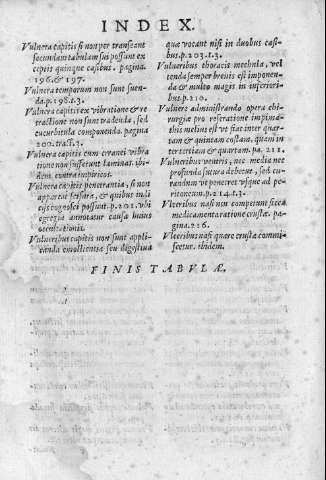 INDEX.
Vulnera capitis si non per transeant
secundam tabulam sui possunt ex
ceptis quinque casibus. pagina.
196. & 197.
Vulnera temporum non sunt suen-
da. p. 198. t. 3.
Vulnera capitis ex vibratione & re
tractione non sunt tradenda, sed
cucurbitula componenda. pagina
200. tra. t. 3.
Vulnera capitis cum cranei vibra
tione non sufferunt laminat. ibi-
dem. contra impiricos.
Vulnera capitis penetrantia, si non
appareat fissura, & quibus indi
cijs cognosci possunt. p. 201. vbi
egregia annotatur causa huius
ocultationis.
Vulneribus capitis non sunt appli-
canda emollientia seu digestiua
quæ vocant nisi in duobus casi-
bus. p. 203. t. 3.
Vulneribus thoracis mechula, vel
tenda semper breuis est imponen-
da & multo magis in inferiori-
bus. p. 210.
Vulnere administrando opera chi-
rurgiæ pro reseratione impima-
this melius est vt fiat inter quar-
tam & quintam costam, quam in
ter tertiam & quartam. pa. 211.
Vulneribus ventris, nec media nec
profunda sutura debetur, sed cu-
randum vt penetret vsque ad pe-
ritoneum. p. 214. t. 3.
Vlceribus nasi non competunt sicca
medicamenta ratione crustæ. pa-
gina. 226.
Vlceribus nasi quare crusta commi
scetur. ibidem.
FINIS TABVLÆ.